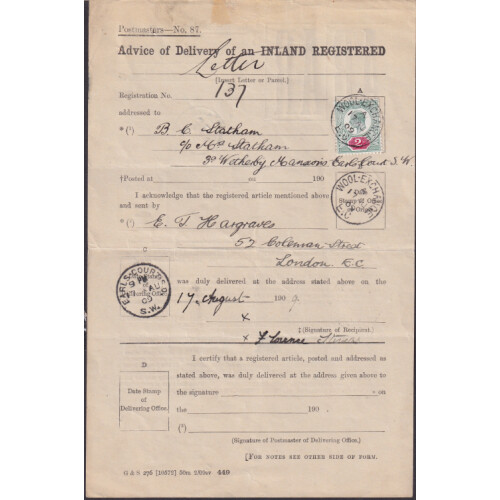 Postmasters—No. 87.
Advice of Delivery of an INLAND REGISTERED
Letter
[Insert Letter or Parcel.]
A
Registration No. 137
addressed to
WOOL-EXCHANGE
E.C.
* (¹) B C. Statham
c/o Mrs Statham
39 Wetherby Mansions Earls Court S.W.
†Posted at on 190
WOOL-EXCHANGE
E.C.
I acknowledge that the registered article mentioned above
and sent by
* (¹) E. T. Hargraves
52 Coleman Street
London E.C
C
EARLS-COURT
AU
09
S.W.
was duly delivered at the address stated above on the
17 August 1909.
×
[Signature of Recipient.]
× Florence
I certify that a registered article, posted and addressed as
D
stated above, was duly delivered at the address given above to
the signature * on
Date Stamp
of
Delivering Office.
the 190
(²)
(Signature of Postmaster of Delivering Office.)
[FOR NOTES SEE OTHER SIDE OF FORM.
G & S 276 50m 449